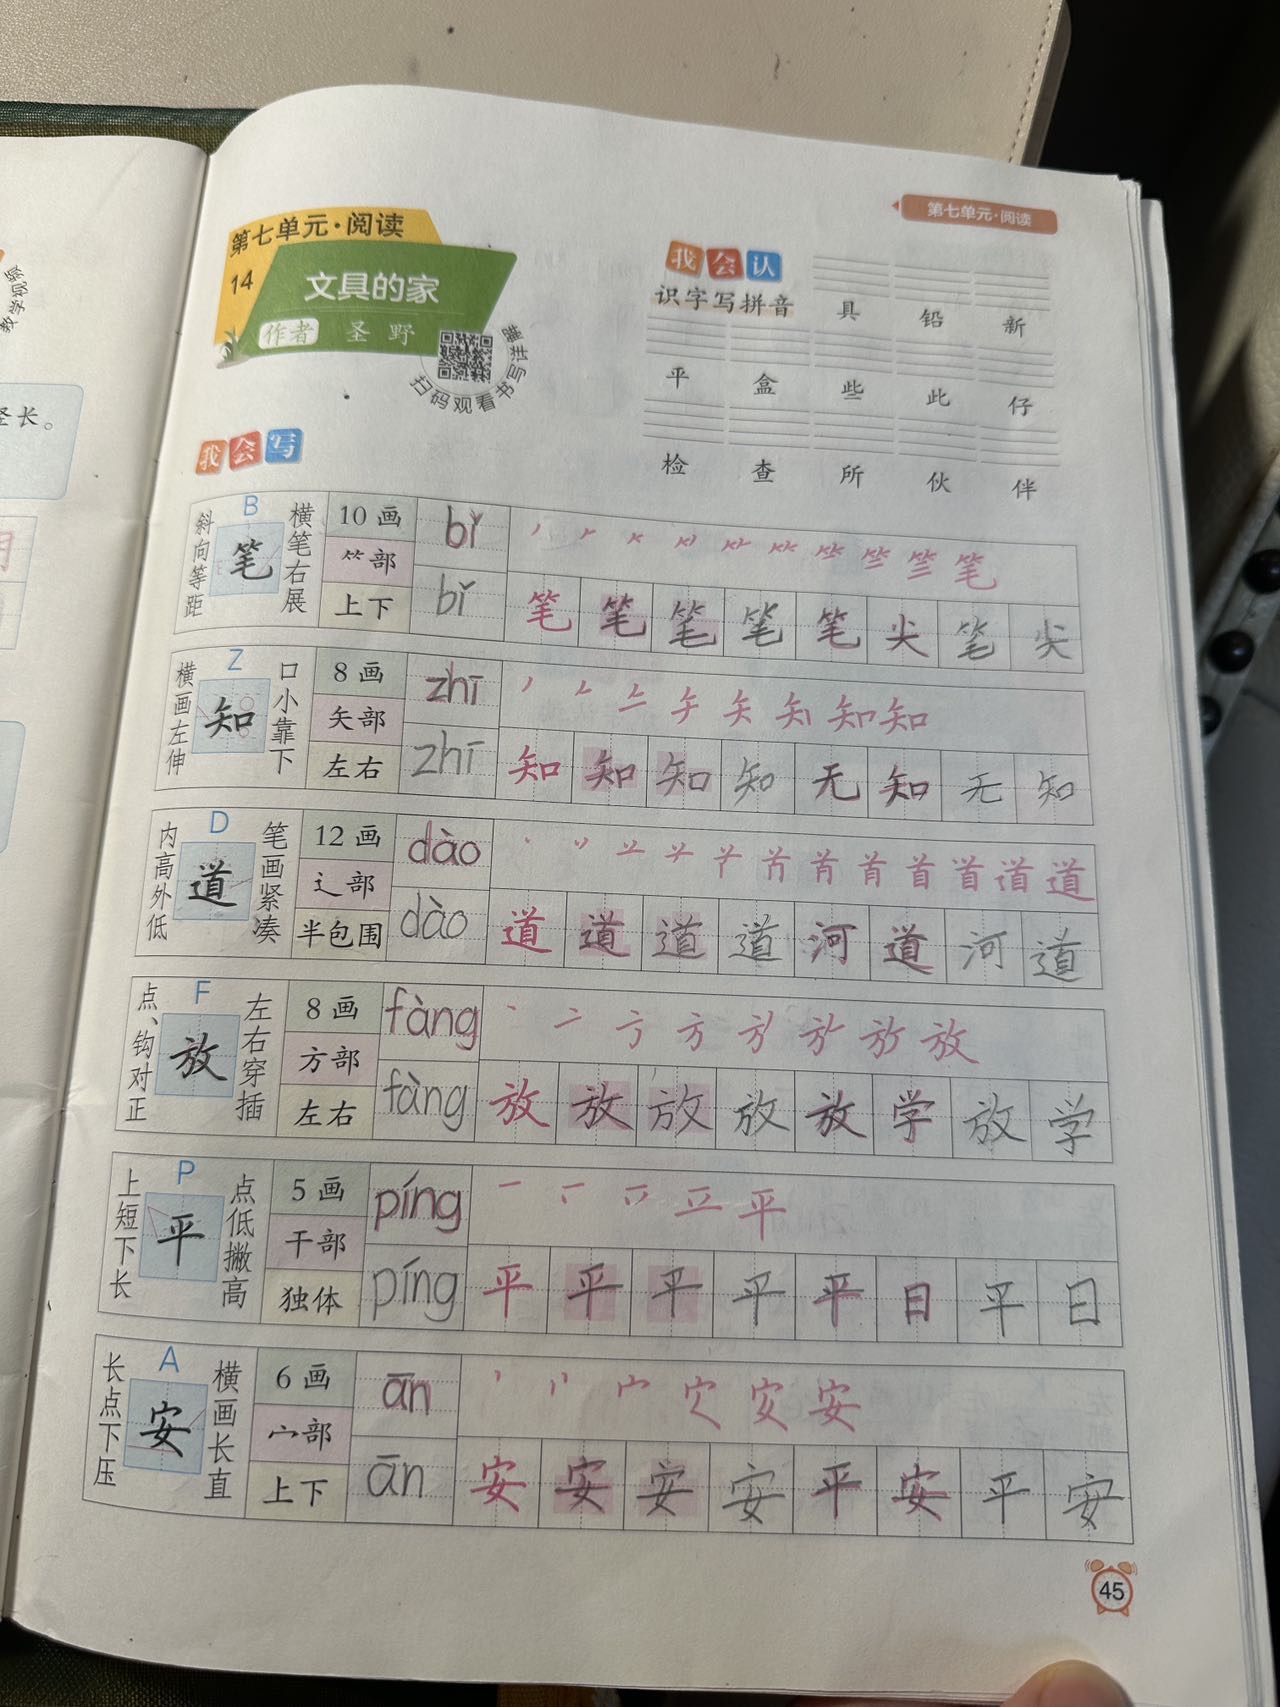 第七单元·阅读
第七单元·阅读
14 文具的家
作者 圣野
扫码观看书写详解
我会认
识字写拼音
具 铅 新
平 盒 些 此 仔
检 查 所 伙 伴
我会写
斜向等距
B
笔
横笔右展
10 画
⺮部
上下
bǐ
bǐ
笔 笔 笔 笔 笔 尖 笔 尖
横画左伸
Z
知
口小靠下
8 画
矢部
左右
zhī
zhī
知 知 知 知 无 知 无 知
内高外低
D
道
笔画紧凑
12 画
辶部
半包围
dào
dào
道 道 道 道 河 道 河 道
点、钩对正
F
放
左右穿插
8 画
方部
左右
fàng
fàng
放 放 放 放 放 学 放 学
上短下长
P
平
点低撇高
5 画
干部
独体
píng
píng
平 平 平 平 平 日 平 日
长点下压
A
安
横画长直
6 画
宀部
上下
ān
ān
安 安 安 安 平 安 平 安
45
教学视频
圣长。